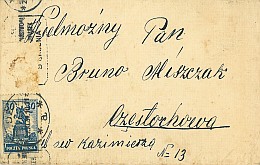 Wielmożny Pan
Bruno Mieszczak
Częstochowa
ul. św Kazimierza
№ 13
50 50
POCZTA POLSKA